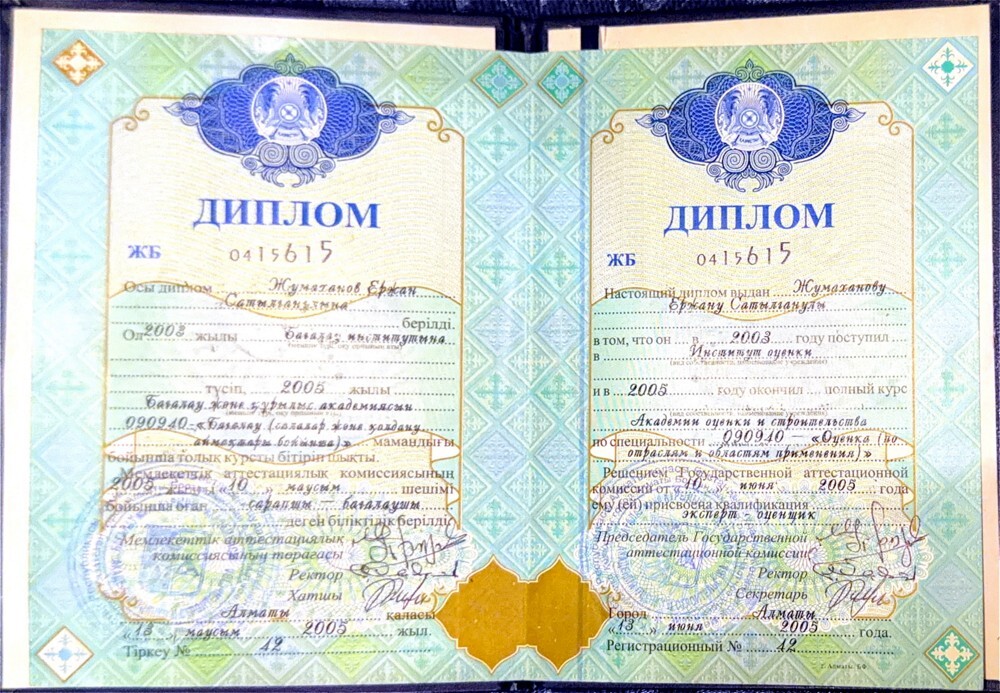 ДИПЛОМ
ЖБ 0415615
Осы диплом Жумаханов Ержан
Сатылганулына
берілді.
Ол 2003 жылы Бағалау институтына
түсіп, 2005 жылы
Бағалау және құрылыс академиясын
090940 - «Бағалау (салалар және қолдану
аймақтары бойынша)» мамандығы
бойынша толық курсты бітіріп шықты.
Мемлекеттік аттестациялық комиссиясының
2005 жылғы «10» маусым шешімі
бойынша оған сарапшы - бағалаушы
деген біліктілік берілді.
Мемлекеттік аттестациялық
комиссиясының төрағасы
Ректор
Хатшы
Алматы қаласы
«13» маусым 2005 жыл.
Тіркеу № 42
ДИПЛОМ
ЖБ 0415615
Настоящий диплом выдан Жумаханову
Ержану Сатылганулы
в том, что он в 2003 году поступил
в Институт оценки
и в 2005 году окончил полный курс
Академии оценки и строительства
по специальности 090940 - «Оценка (по
отраслям и областям применения)»
Решением Государственной аттестационной
комиссии от «10» июня 2005 года
ему (ей) присвоена квалификация
эксперт - оценщик
Председатель Государственной
аттестационной комиссии
Ректор
Секретарь
Город Алматы
«13» июня 2005 года.
Регистрационный № 42
г. Алматы. БФ.